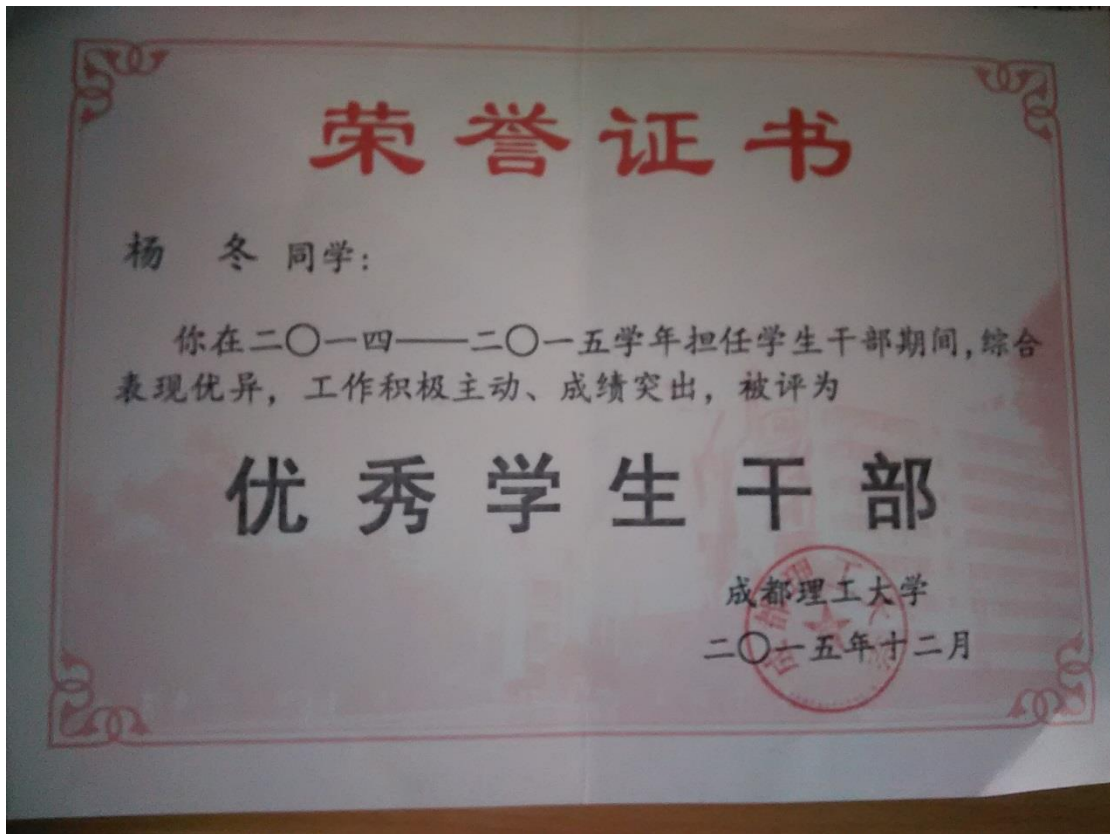 荣誉证书
杨 冬 同学：
你在二〇一四——二〇一五学年担任学生干部期间，综合
表现优异，工作积极主动、成绩突出，被评为
优秀学生干部
成都理工大学
二〇一五年十二月